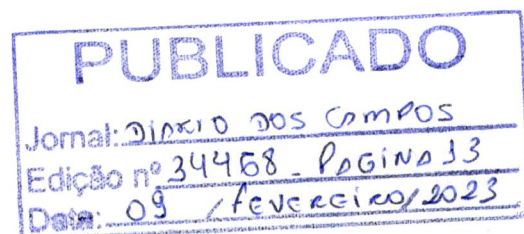 PUBLICADO
Jornal: DIARIO DOS CAMPOS
Edição nº 34468 - PAGINA 13
Data: 09 / FEVEREIRO/2023